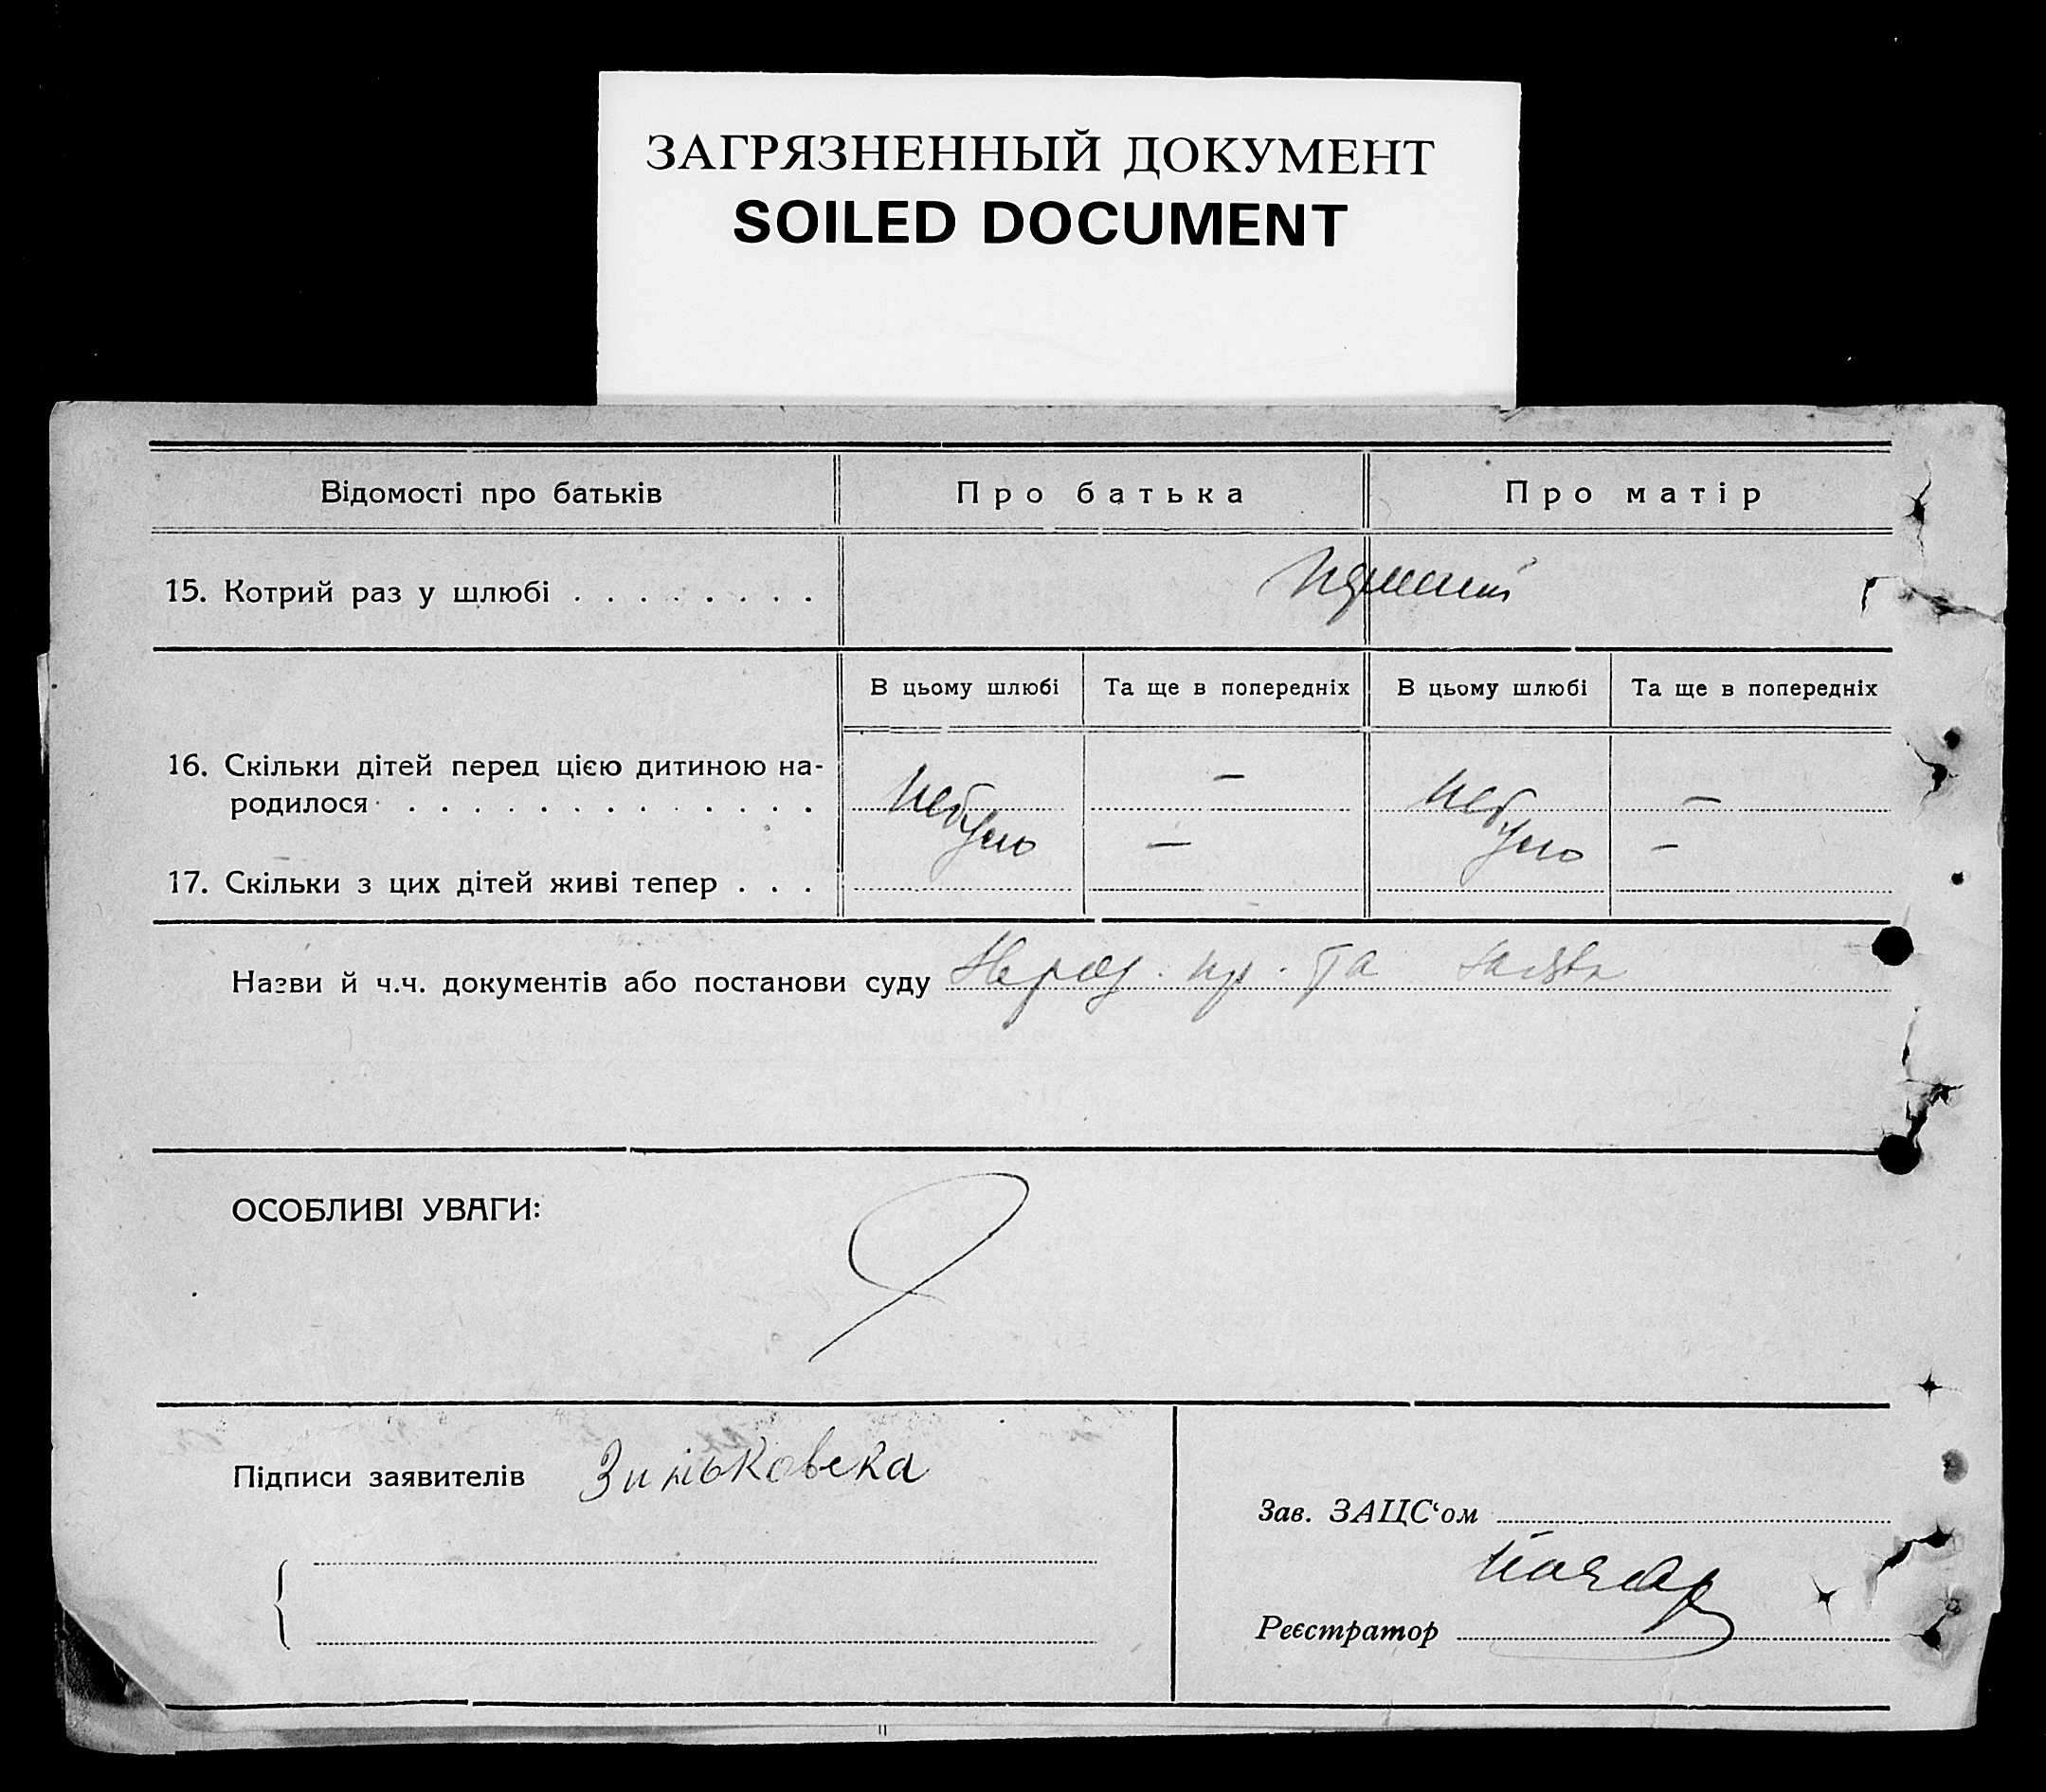 ЗАГРЯЗНЕННЫЙ ДОКУМЕНТ
SOILED DOCUMENT
Відомості про батьків Про батька Про матір
15. Котрий раз у шлюбі . . . . . . . .
В цьому шлюбі Та ще в попередніх В цьому шлюбі Та ще в попередніх
16. Скільки дітей перед цією дитиною на-
родилося . . . . . . . . . . . . . — —
небуло — небуло —
17. Скільки з цих дітей живі тепер . . .
Назви й ч.ч. документів або постанови суду та
ОСОБЛИВІ УВАГИ:
Підписи заявителів Зиньковска
Зав. ЗАЦС‘ом
Реєстратор